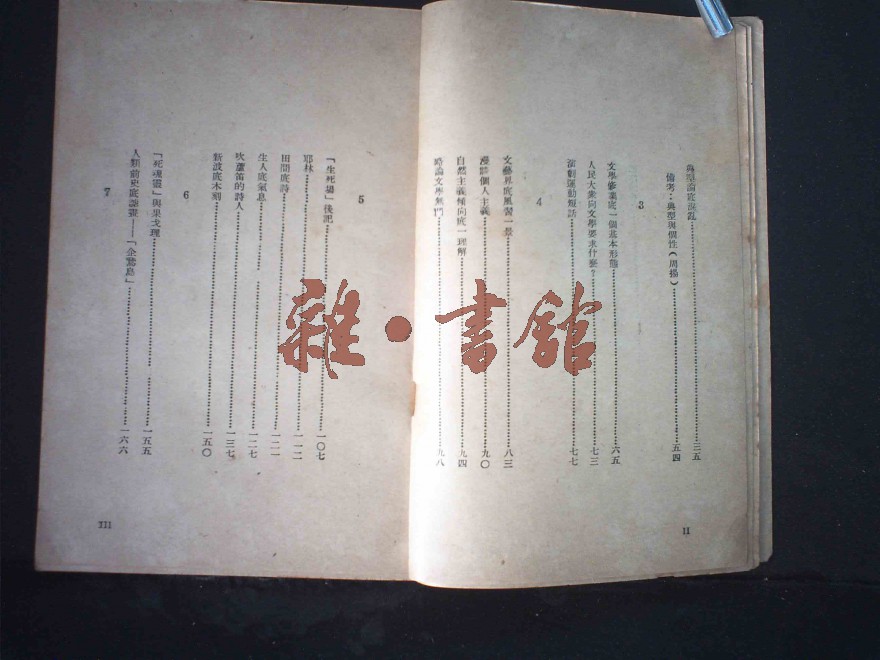 典型論底混亂……三五
備考:典型與個性(周揚)……五四
3
文學修業底一個基本形態……六五
人民大衆向文學要求什麼?……七三
演劇運動短話……七七
4
文藝界底風習一景……八三
漫談個人主義……九〇
自然主義傾向底一理解……九四
略論文學無門……九八
II
5
「生死場」後記……一〇七
耶林……一一二
田間底詩……一二一
生人底氣息……一二七
吹蘆笛的詩人……一三七
新波底木刻……一五〇
6
「死魂靈」與果戈理……一五五
人類前史底譴畫——「企鵝島」……一六六
7
III
雜·書館